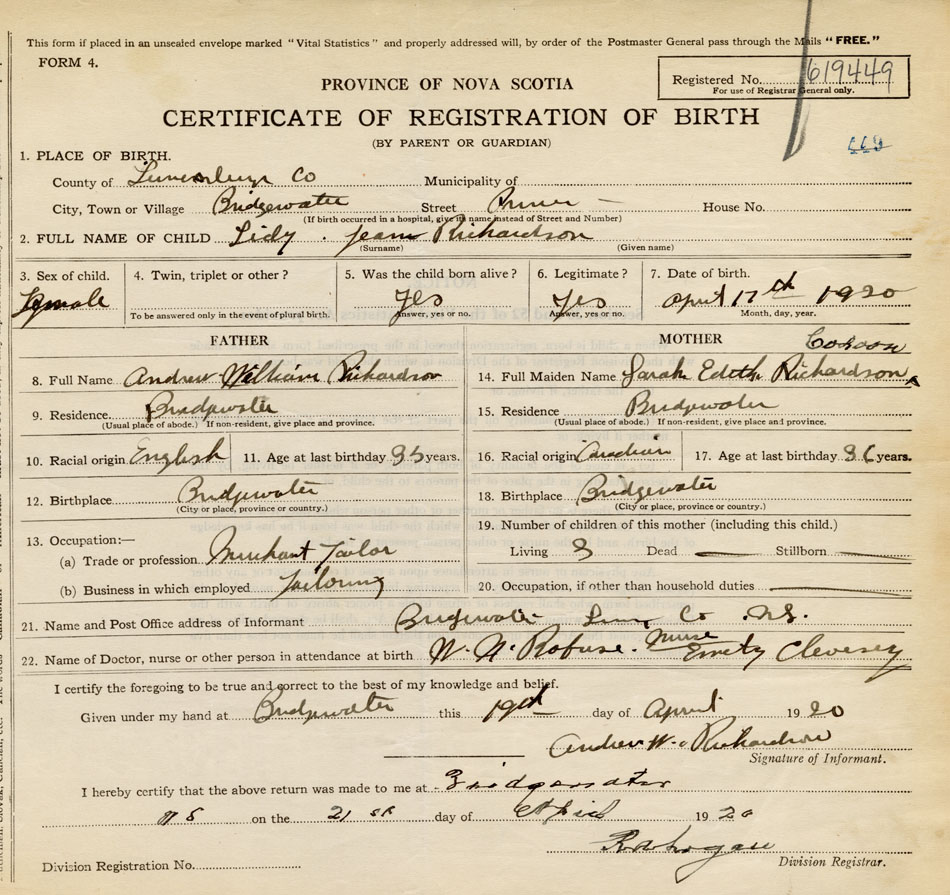 This form if placed in an unsealed envelope marked "Vital Statistics" and properly addressed will, by order of the Postmaster General pass through the Mails "FREE."
FORM 4.
Registered No. 619449
For use of Registrar General only.
PROVINCE OF NOVA SCOTIA
CERTIFICATE OF REGISTRATION OF BIRTH
(BY PARENT OR GUARDIAN)
1. PLACE OF BIRTH.
County of Lunenburg Co Municipality of
City, Town or Village Bridgewater Street House No.
(If birth occurred in a hospital, give its name instead of Street and Number)
2. FULL NAME OF CHILD Jean Richardson
(Surname) (Given name)
3. Sex of child. 4. Twin, triplet or other? 5. Was the child born alive? 6. Legitimate? 7. Date of birth.
Female Yes Yes April 17th 1920
To be answered only in the event of plural birth. Answer, yes or no. Answer, yes or no. Month, day, year.
FATHER
8. Full Name Andrew William Richardson
9. Residence. Bridgewater
(Usual place of abode.) If non-resident, give place and province.
10. Racial origin English 11. Age at last birthday 35 years.
12. Birthplace Bridgewater
(City or place, province or country.)
13. Occupation:—
(a) Trade or profession Merchant Tailor
(b) Business in which employed Tailoring
MOTHER
14. Full Maiden Name Sarah Edith Richardson
15. Residence Bridgewater
(Usual place of abode.) If non-resident, give place and province.
16. Racial origin Canadian 17. Age at last birthday 36 years.
18. Birthplace Bridgewater
(City or place, province or country.)
19. Number of children of this mother (including this child.)
Living 3 Dead — Stillborn —
20. Occupation, if other than household duties
21. Name and Post Office address of Informant Bridgewater Lun Co N.S.
22. Name of Doctor, nurse or other person in attendance at birth Nurse
I certify the foregoing to be true and correct to the best of my knowledge and belief.
Given under my hand at Bridgewater this 19th day of April 1920
Andrew W. Richardson
Signature of Informant.
I hereby certify that the above return was made to me at Bridgewater
NS on the 21st day of April 1920
Division Registration No. Division Registrar.